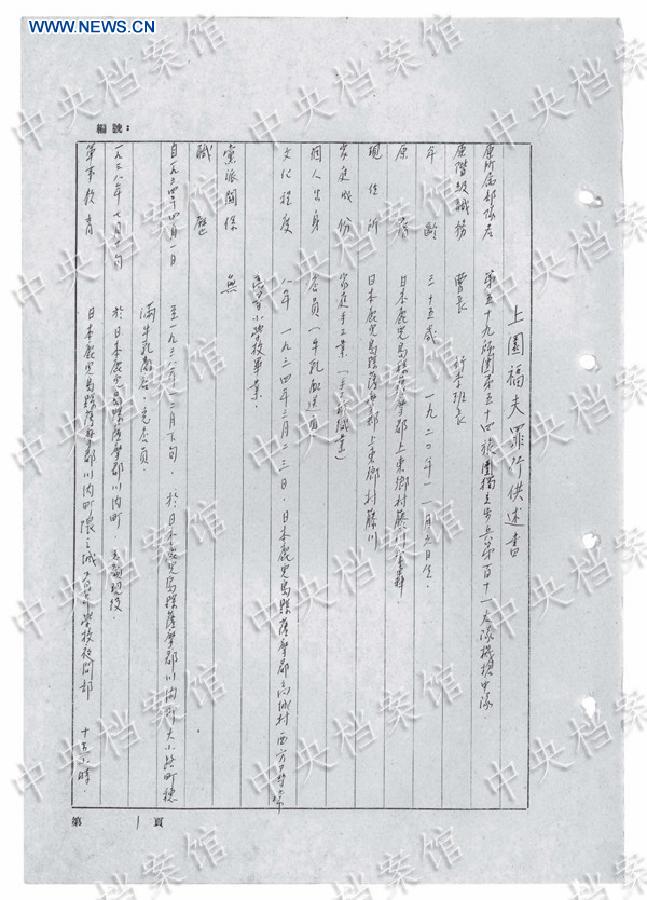 WWW.NEWS.CN
編號：
上園福夫罪行供述書
原所属部隊名 第五十九師團第五十四旅團獨立步兵第百十一大隊機槍中隊．
原階級職務 曹長 行李班長
年齡 三十五歲 一九二〇年一一月 日生．
原籍 日本鹿児島縣薩摩郡上東鄉村藤川 ．
現住所 日本鹿児島縣薩摩郡上東鄉村藤川
家庭成份 家庭手工業
個人出身 店員一牛乳配送員
文化程度 八年 一九三四年三月二三日．日本鹿児島縣薩摩郡高城村西方尋常
高等小學校畢業．
黨派關係 無
職歷
自一九三四年四月一日 至一九三八年一二月下旬．於日本鹿児島縣薩摩郡川內町大小路町穂
滿牛乳商店．充店員．
一九三八年七月 旬 於日本鹿児島縣薩摩郡川內町．
軍事教育 日本鹿児島縣薩摩郡川內町隈之城 學校 十五小時．
第 1 頁
中央档案馆